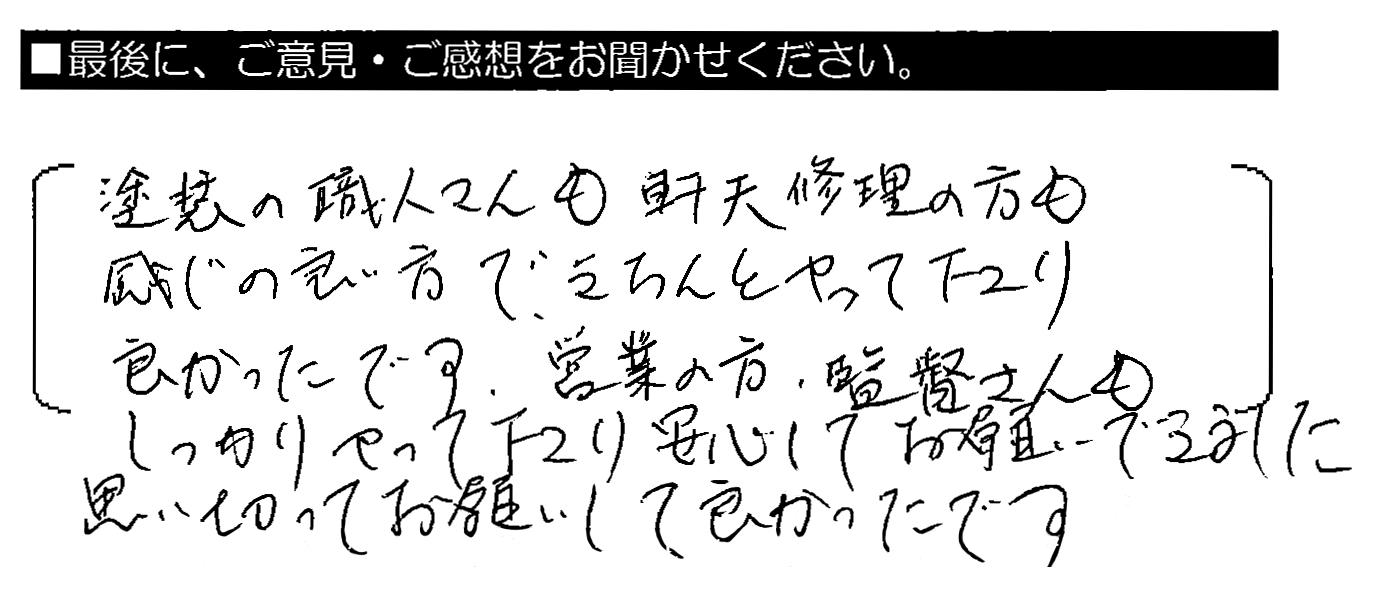 ■最後に、ご意見・ご感想をお聞かせください。
塗装の職人さんも軒天修理の方も
感じの良い方で、きちんとやって下さり
良かったです。営業の方、監督さんも
しっかりやって下さり安心してお願いできました
思い切ってお願いして良かったです